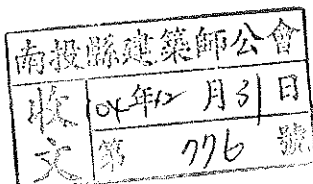 南投縣建築師公會
收文
104年12月31日
第 776 號